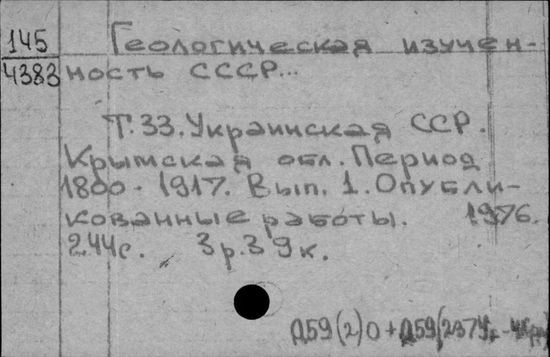 145 Геологическая изучен-
4383 ность СССР...
Т.33. Украинская ССР.
Крымская обл. Период
1800-1917. Вып. 1. Опубли-
кованные работы. 1976.
244с. 3р.39к.
Д59(2)0+Д59(2